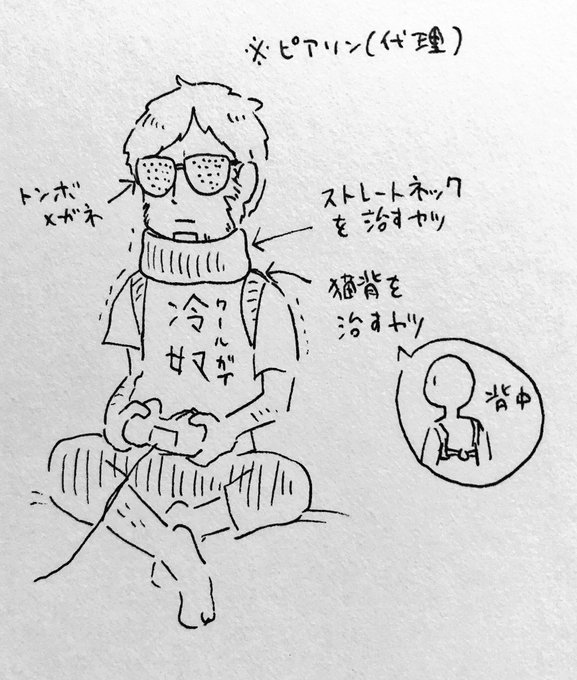 ※ピアリン(代理)
トンボ
メガネ
ストレートネック
を治すヤツ
猫背を
治すヤツ
クールガイ
冷奴
背中